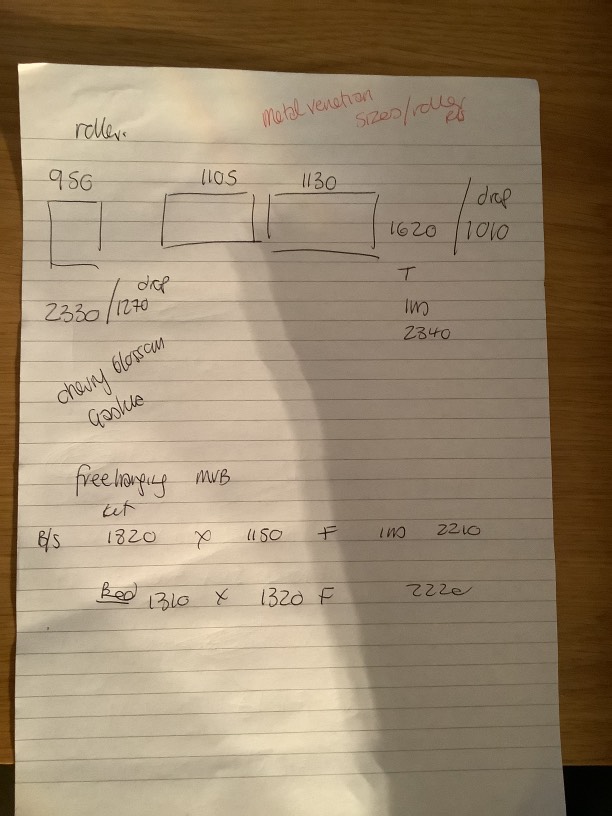 metal venetion
sizes/roller
roller.
950 1105 1130
1620 / drop 1010
T
2330 / drop 1270
1m
2340
cherry blossom
freehanging MVB
B/S 1820 x 1150 F 1m 2210
Bed 1310 x 1320 F 2220